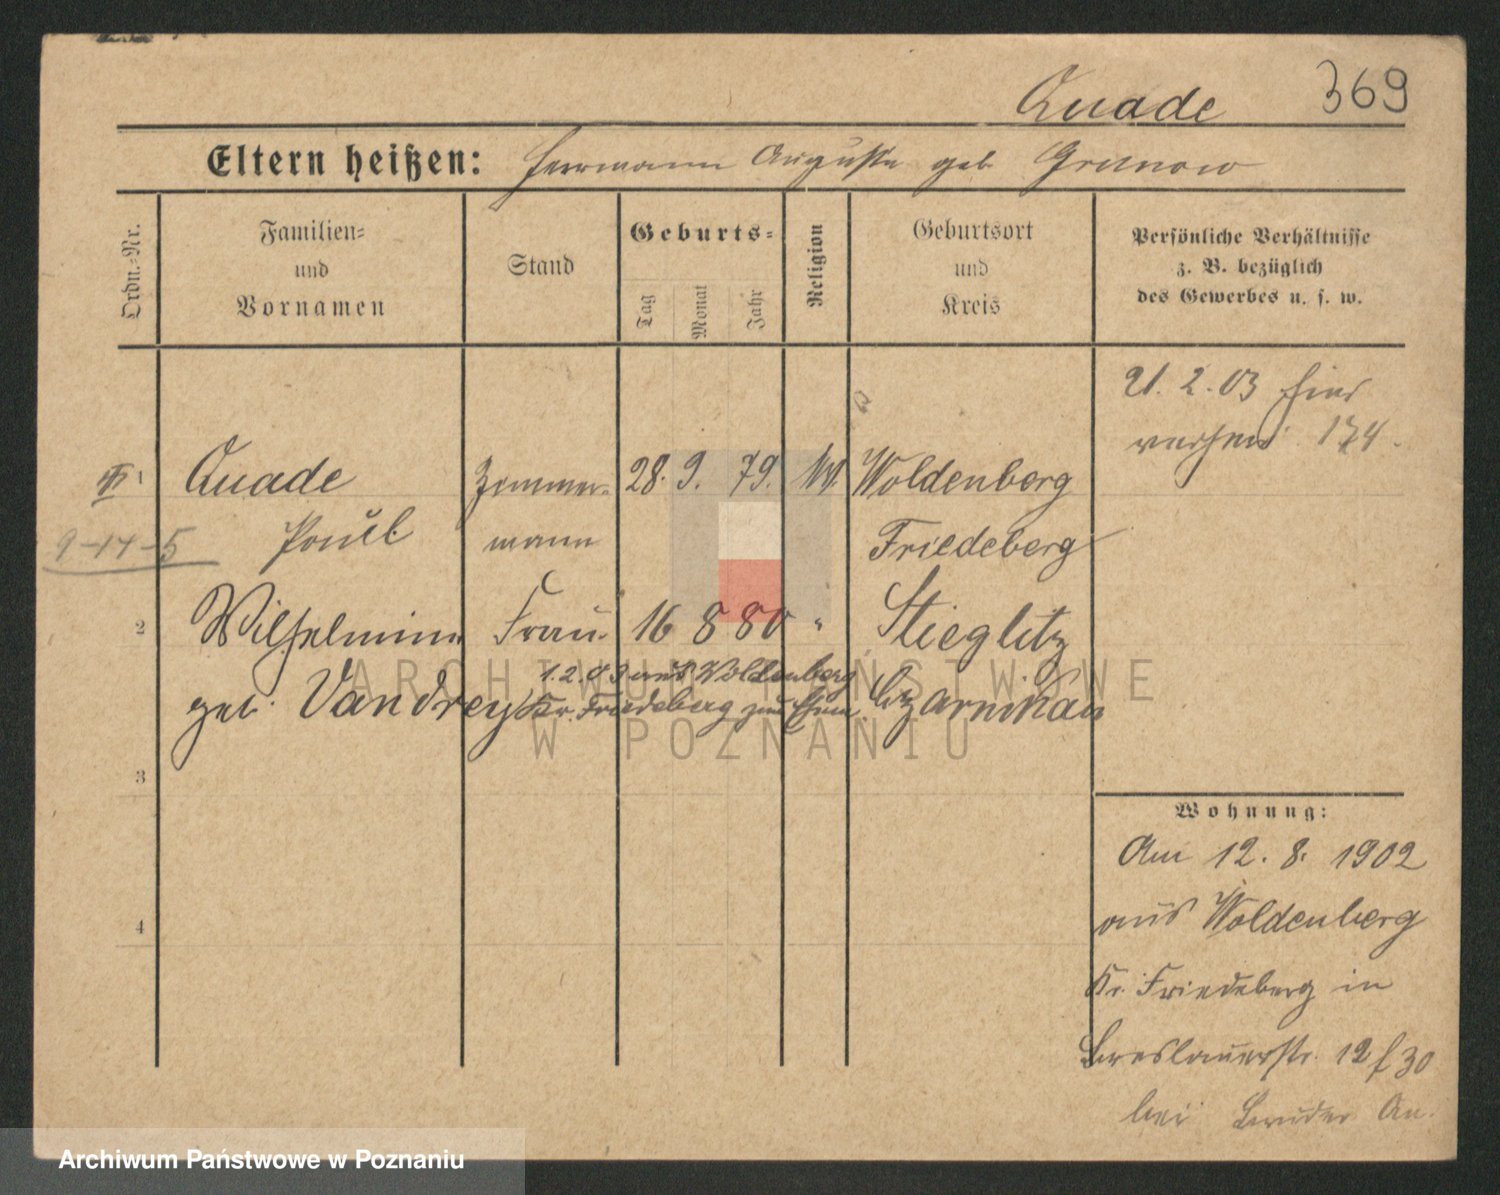 Quade 369
Eltern heißen: Herrmann Auguste geb Grunow
Ordn.-Nr.
Familien-
und
Vornamen
Stand
Geburts-
Tag
Monat
Jahr
Religion
Geburtsort
und
Kreis
Persönliche Verhältnisse
z. B. bezüglich
des Gewerbes u. s. w.
21. 2. 03 hier
174.
1 Quade Zimmer- 28. 9. 79. Woldenberg
9-14-5 Paul mann Friedeberg
2 Wilhelmine Frau 16 8 80 " Stieglitz
1.2.03 aus Woldenberg
geb. Vandrey Kr. Friedeberg zum Ehem. Czarnikau
3
4
Wohnung:
Am 12. 8. 1902
aus Woldenberg
Kr. Friedeberg in
Breslauerstr. 12 f 30
bei Bruder
ARCHIWUM PAŃSTWOWE
W POZNANIU
Archiwum Państwowe w Poznaniu